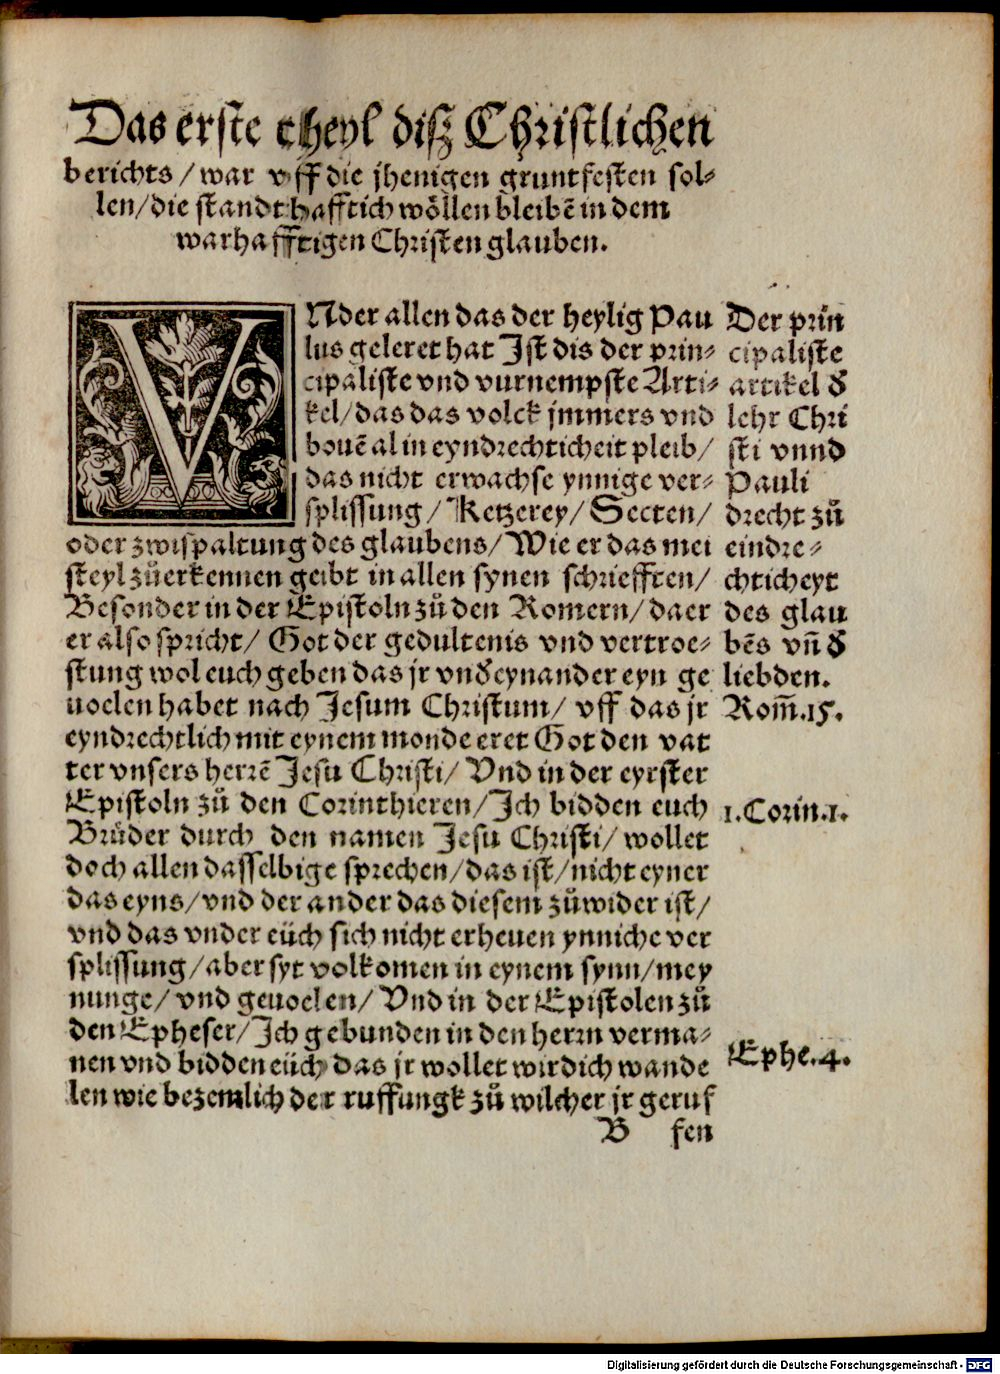 Das erste theyl disz Christlichen
berichts / war vff die jhenigen gruntfesten sol⸗
len / die standthafftich wöllen bleibē in dem
warhafftigen Christen glauben.
VNder allen das der heylig Pau
lus geleret hat Jst dis der prin⸗
cipaliste vnd vurnempste Arti⸗
kel / das das volck jmmers vnd
bouē al in eyndrechticheit pleib /
das nicht erwachse ynnige ver⸗
splissung / Ketzerey / Secten /
oder zwispaltung des glaubens / Wie er das mei
steyl zůerkennen geibt in allen synen schriefften /
Besonder in der Epistoln zů den Romern / da er
er also spricht / Got der gedultenis vnd vertroe⸗
stung wol euch geben das jr vnd̕ eynander eyn ge
uoelen habet nach Jesum Christum / vff das jr
eyndrechtlich mit eynem monde eret Got den vat
ter vnsers herrē Jesu Christi / Vnd in der eyrster
Epistoln zů den Corinthieren / Jch bidden euch
Brüder durch den namen Jesu Christi / wollet
doch allen dasselbige sprechen / das ist / nicht eyner
das eyns / vnd der ander das diesem zůwider ist /
vnd das vnder eüch sich nicht erheuen ynniche ver
splissung / aber syt volkomen in eynem synn / mey
nunge / vnd geuoelen / Vnd in der Epistolen zů
den Epheser / Jch gebunden in den herrn verma⸗
nen vnd bidden eüch das jr wollet wirdich wande
len wie bezemlich der ruffungk zů wilcher jr geruf
B fen
Der prin
cipaliste
artikel d̕
lehr Chri
sti vnnd
Pauli
drecht zů
eindre⸗
chticheyt
des glau
bēs vn̄ d̕
liebden.
Rom̄.15.
1.Corin.1.
Ephe.4.
Digitalisierung gefördert durch die Deutsche Forschungsgemeinschaft - DFG